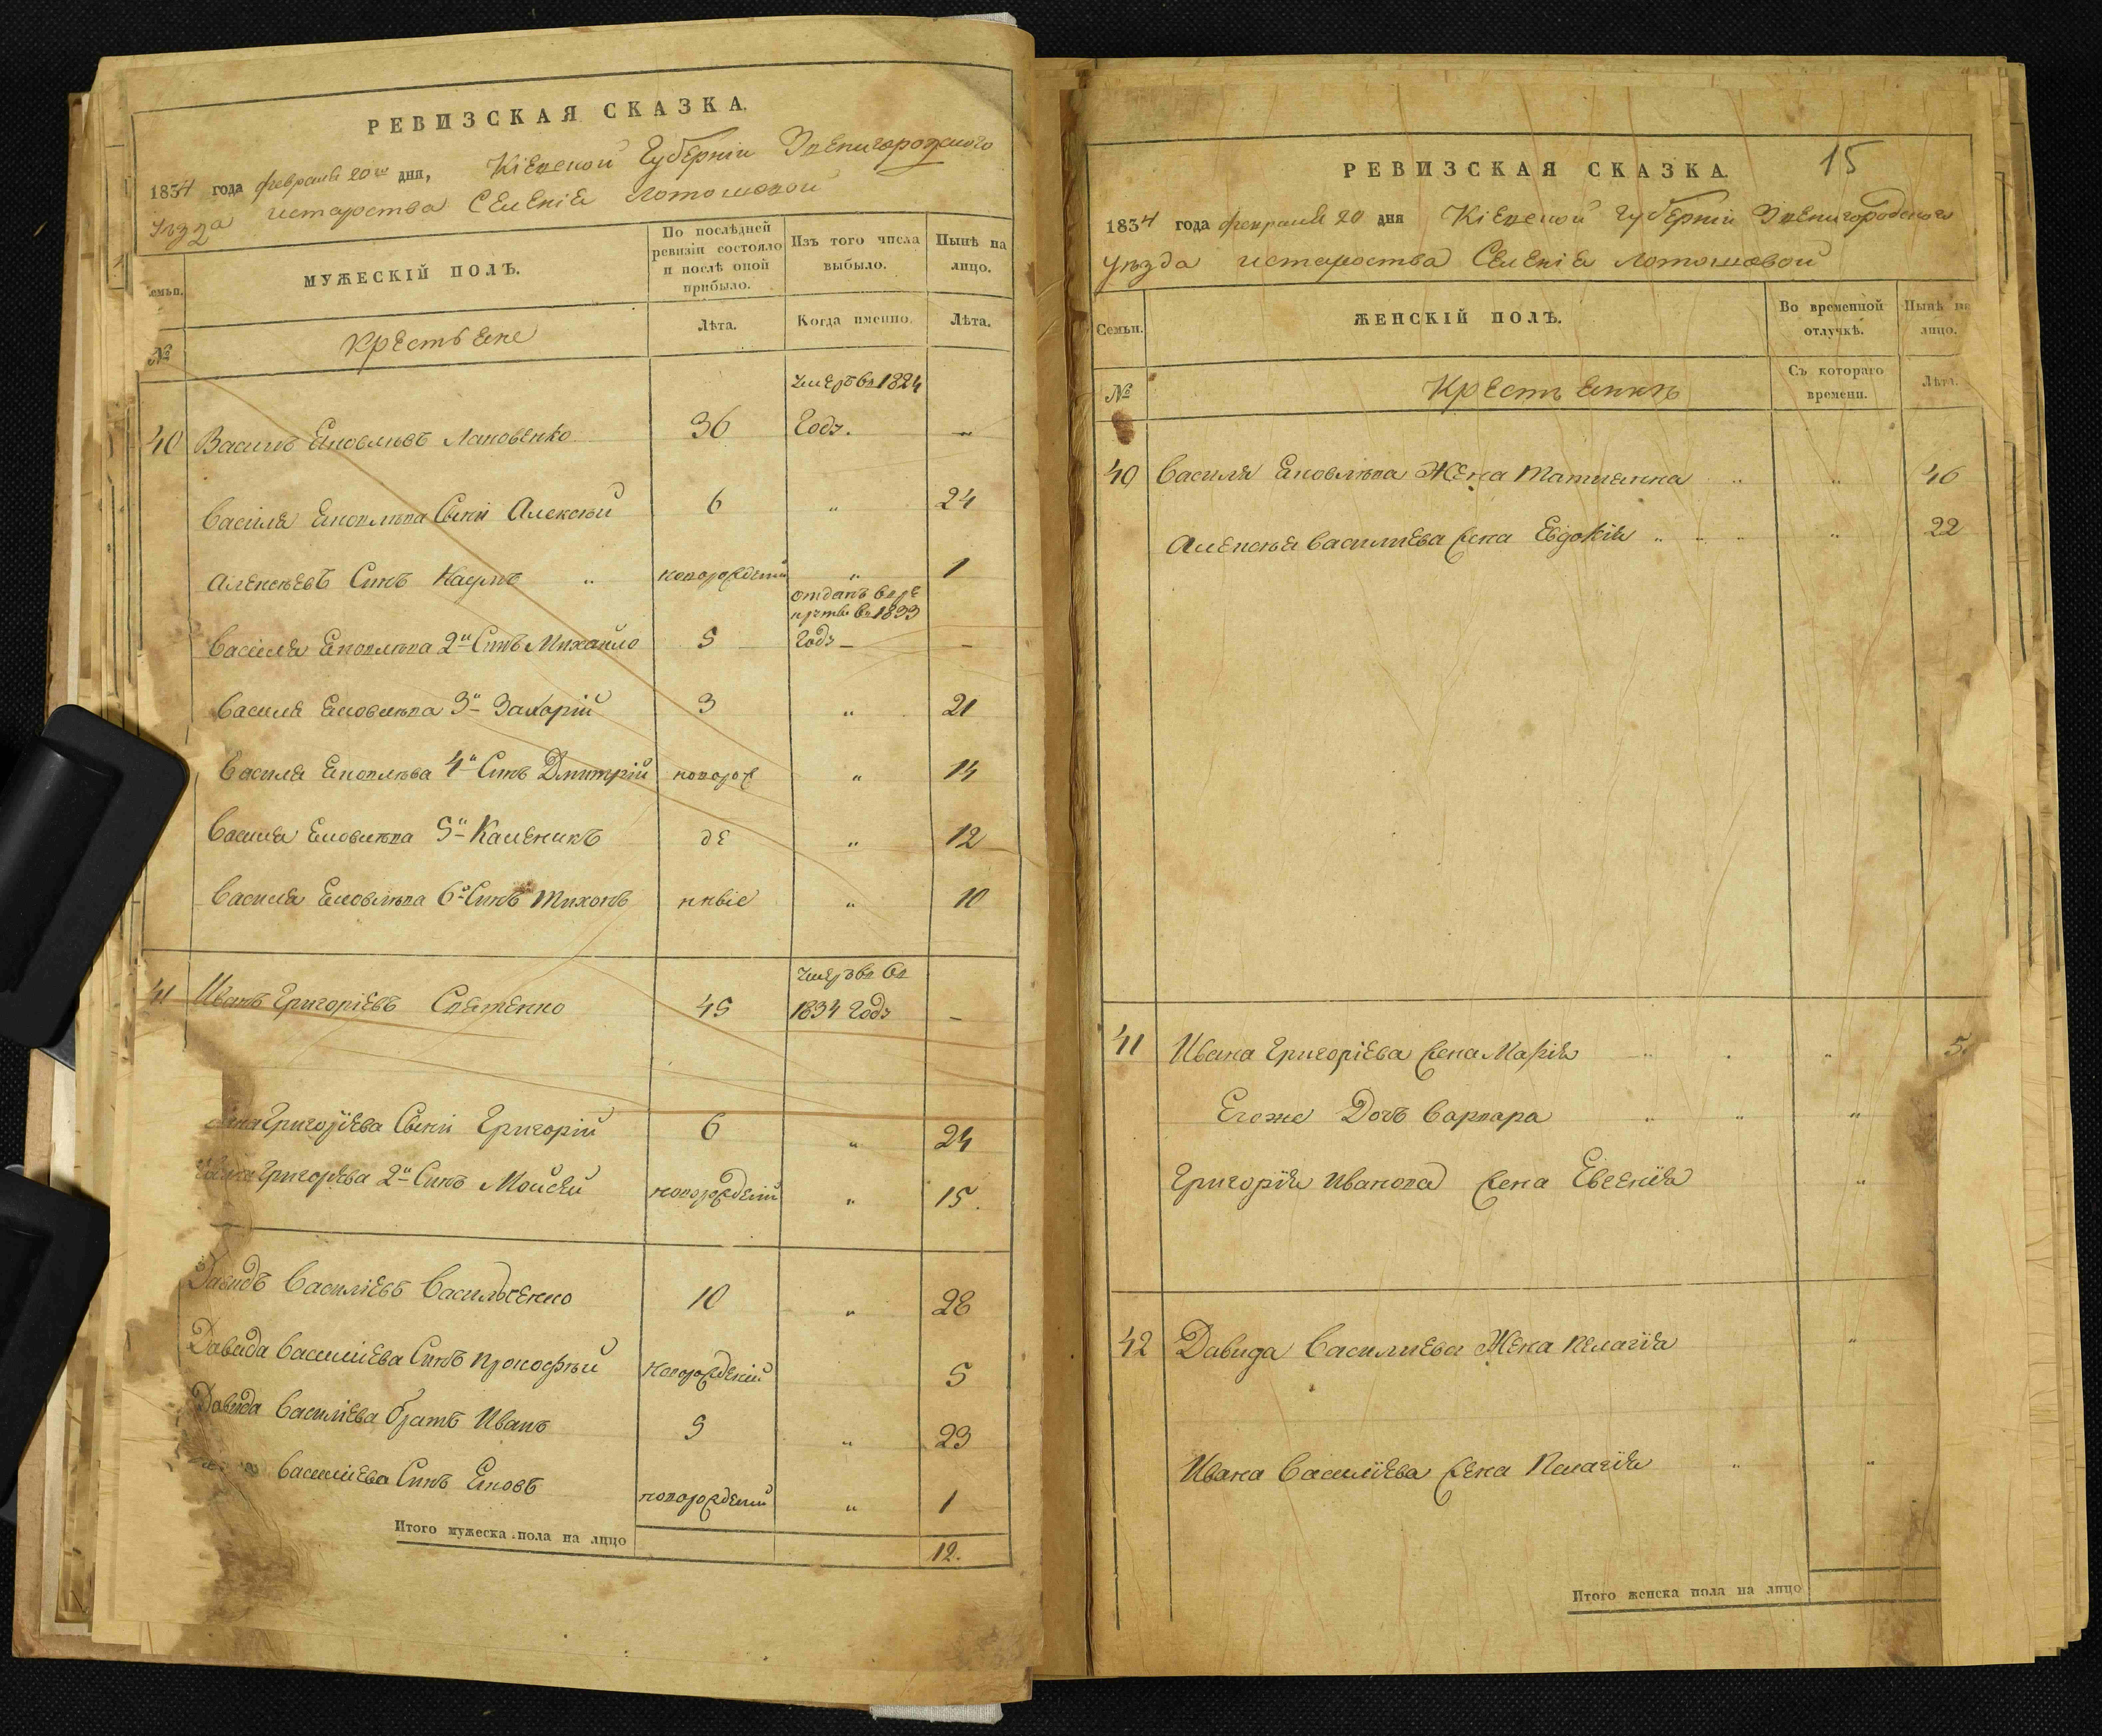 РЕВИЗСКАЯ СКАЗКА.
1834 года февраля 20го дня, Кіевской Губерніи Звенигородского
уѣзда Селенія
мужескій полъ.
По послѣдней ревизіи состояло и послѣ оной прибыло.
Изъ того числа выбыло.
Нынѣ на лицо.
№
Крестьяне
Лѣта.
Когда именно.
Лѣта.
40 Василь Яковлевъ 36 умеръ въ 1824 Годѣ. —
Василя Яковлѣва Сынъ Алексѣй 6 " 24
Алексѣевъ Синъ Каупъ " новорожденій " 1
Василя Яковлѣва 2й Синъ Михайло 5 отданъ в ре 1833 Годѣ — —
Василя Яковлѣва 3й Захорій 3 " 21
Василя Яковлѣва 4й Синъ Дмитрій новорож " 14
Василя Яковлѣва 5й Каленикъ де " 12
Василя Яковлѣва 6й Синъ Тихонъ нніе " 10
41 Иванъ Григоріевъ 45 1834 Годѣ —
Григоріева Григорій 6 " 24
Григорева 2й Синъ Мойсей новорожденій " 15.
Давидъ Василіевъ Васильченко 10 " 28
Давида Василіева Синъ Прокофѣй новорожденій 5
Давида Василіева братъ Иванъ 5 " 23
Василіева Синъ Яковъ новорожденій " 1
Итого мужеска пола на лицо 12.
15
РЕВИЗСКАЯ СКАЗКА.
1834 года февраля 20 дня Кіевской Губерніи Звенигородского
уѣзда Селенія
Семьи.
женскій полъ.
Во временной отлучкѣ.
Нынѣ на лицо.
№
Крестьянкѣ
Съ котораго времени.
Лѣта.
40 Василя Яковлѣва Жена Татиянна " " 46
Алексѣя Василиева жена Евдокія " " 22
41 Ивана Григоріева жена Марія " "
Егоже Дочь Варвара " " "
Григорія Иванова жена Евгенія "
42 Давида Василиева Жена Пелагія "
Ивана Василіева жена Пелагія " "
Итого женска пола на лицо